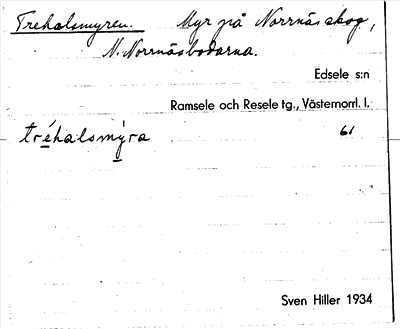 Trehalsmyren. Myr på Norrnäs skog,
N. Norrnäsbodarna.
Edsele s:n
Ramsele och Resele tg., Västernorrl. l.
tréhalsmýra 61
Sven Hiller 1934